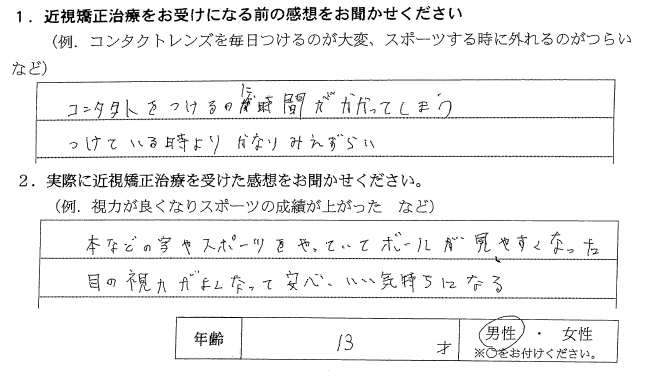 １．近視矯正治療をお受けになる前の感想をお聞かせください
（例．コンタクトレンズを毎日つけるのが大変、スポーツする時に外れるのがつらい
など）
コンタクトをつけるのに時間がかかってしまう
つけている時よりかなりみえずらい
２．実際に近視矯正治療を受けた感想をお聞かせください。
（例．視力が良くなりスポーツの成績が上がった　など）
本などの字やスポーツをやっていてボールが見やすくなった
目の視力がよくなって安心、いい気持ちになる
年齢　13　才　男性　・　女性
※○をお付けください。